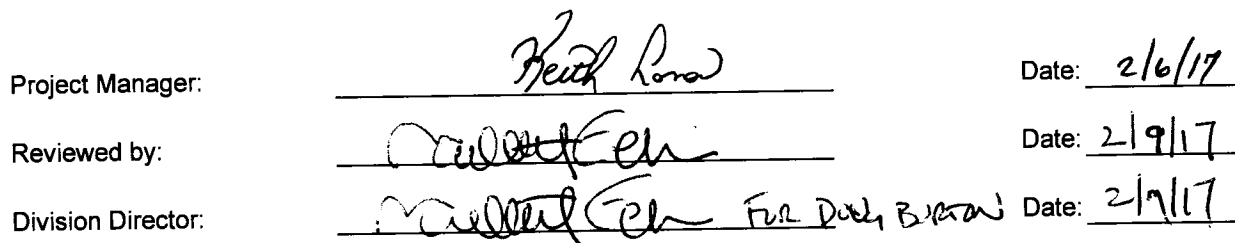 Project Manager: Keith Date: 2/6/17
Reviewed by: Date: 2/9/17
Division Director: FOR Doug BURTON Date: 2/9/17